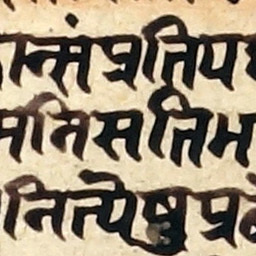 न्संप्रतिप
मनिसतिम
नित्येषुप्र